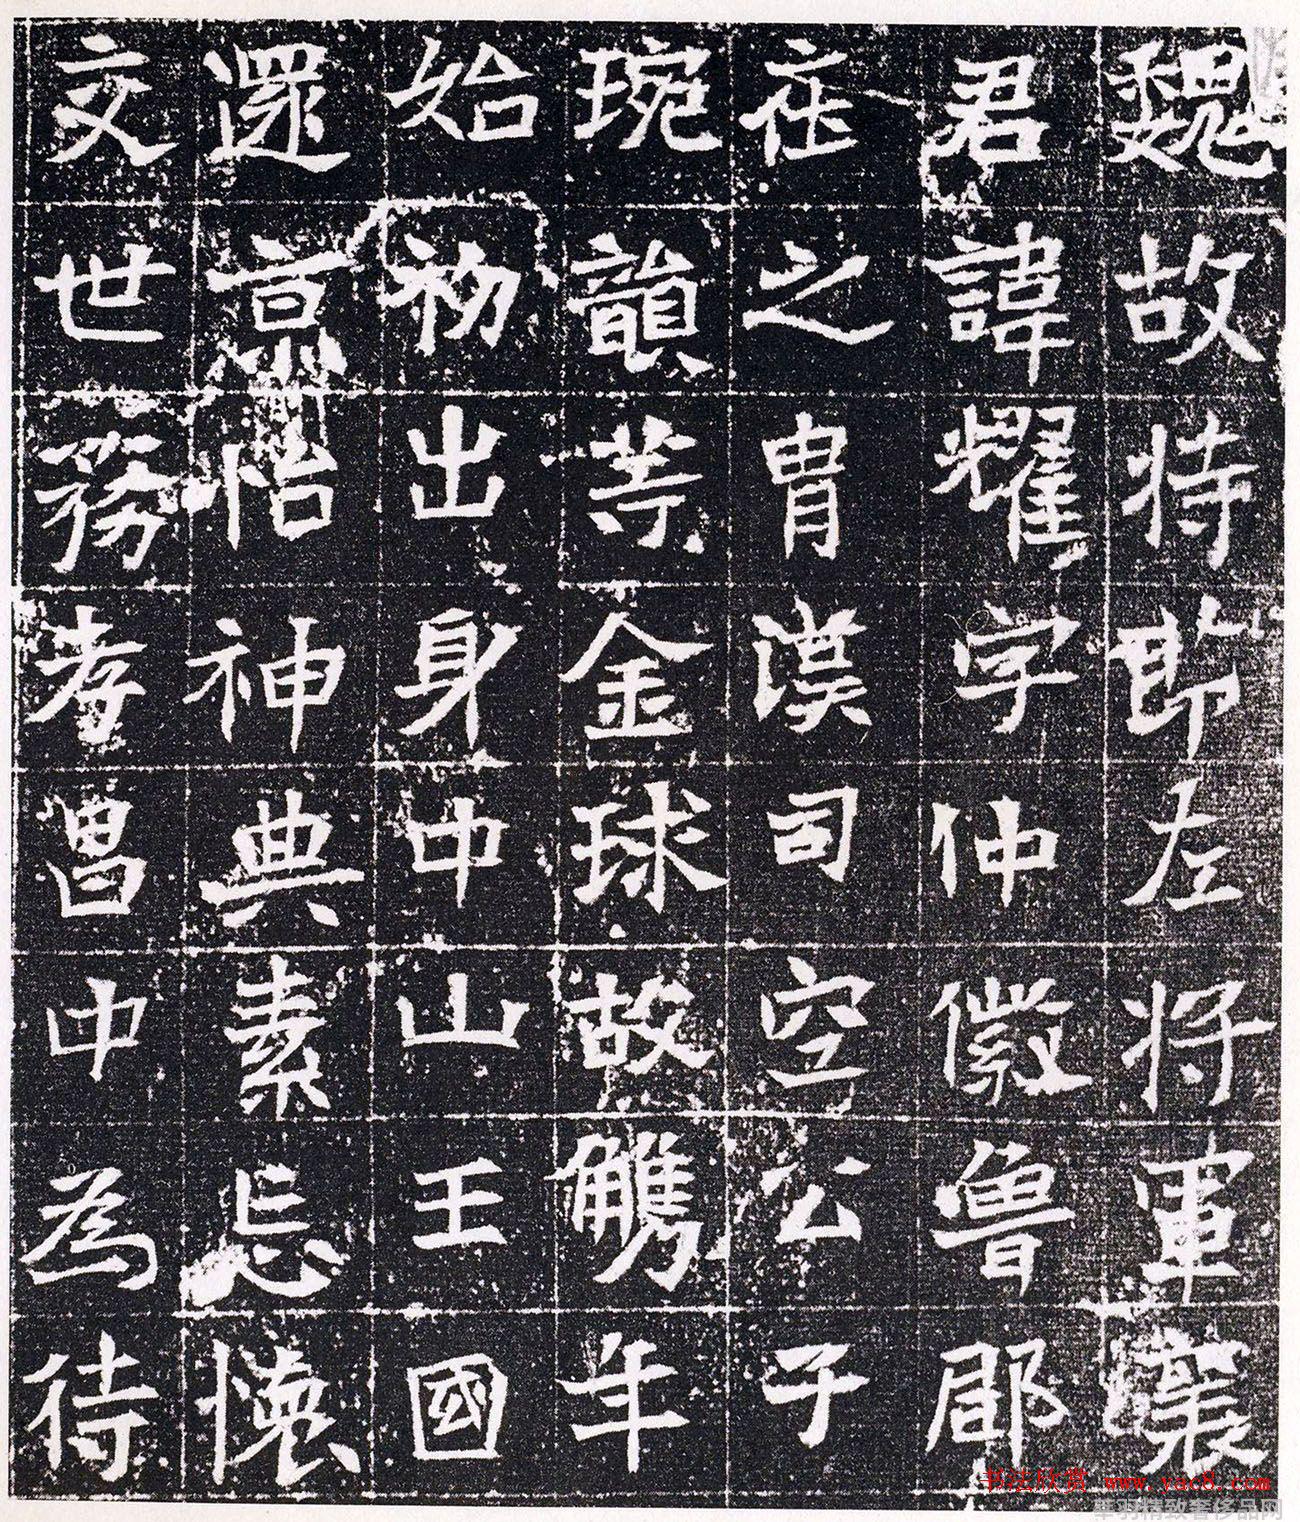 魏故持節左將軍襄
君諱耀字仲徽魯郡
在之胄漢司空公子
琬韻等金球故觿年
始初出身中山王國
還京怡神典素忘懷
交世務孝昌中為待
书法欣赏 www.yac8.com
華羽精致奢侈品网